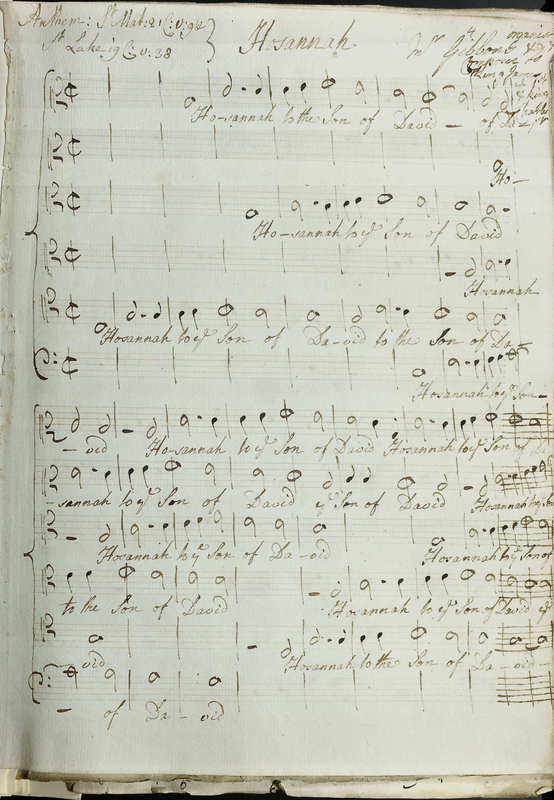 Anthem: St Mat: 21 C: v: 9 &
St Luke 19 C: v: 38
Hosannah
Mr Gibbons
organist
composer to
King James
Ho-sannah to the Son of David - of Da -
Ho-
Ho-sannah to ye Son of David
Hosannah
Hosannah to ye Son of Da-vid to the Son of Da-
Hosannah to ye Son-
- vid Ho-sannah to ye Son of David Hosannah to ye Son of
-sannah to ye Son of David ye Son of David Hosannah to ye
Hosannah to ye Son of Da-vid Hosannah to ye Son of
to the Son of David Hosannah to ye Son of David ye
vid Hosannah to the Son of Da-vid-
- of Da-vid